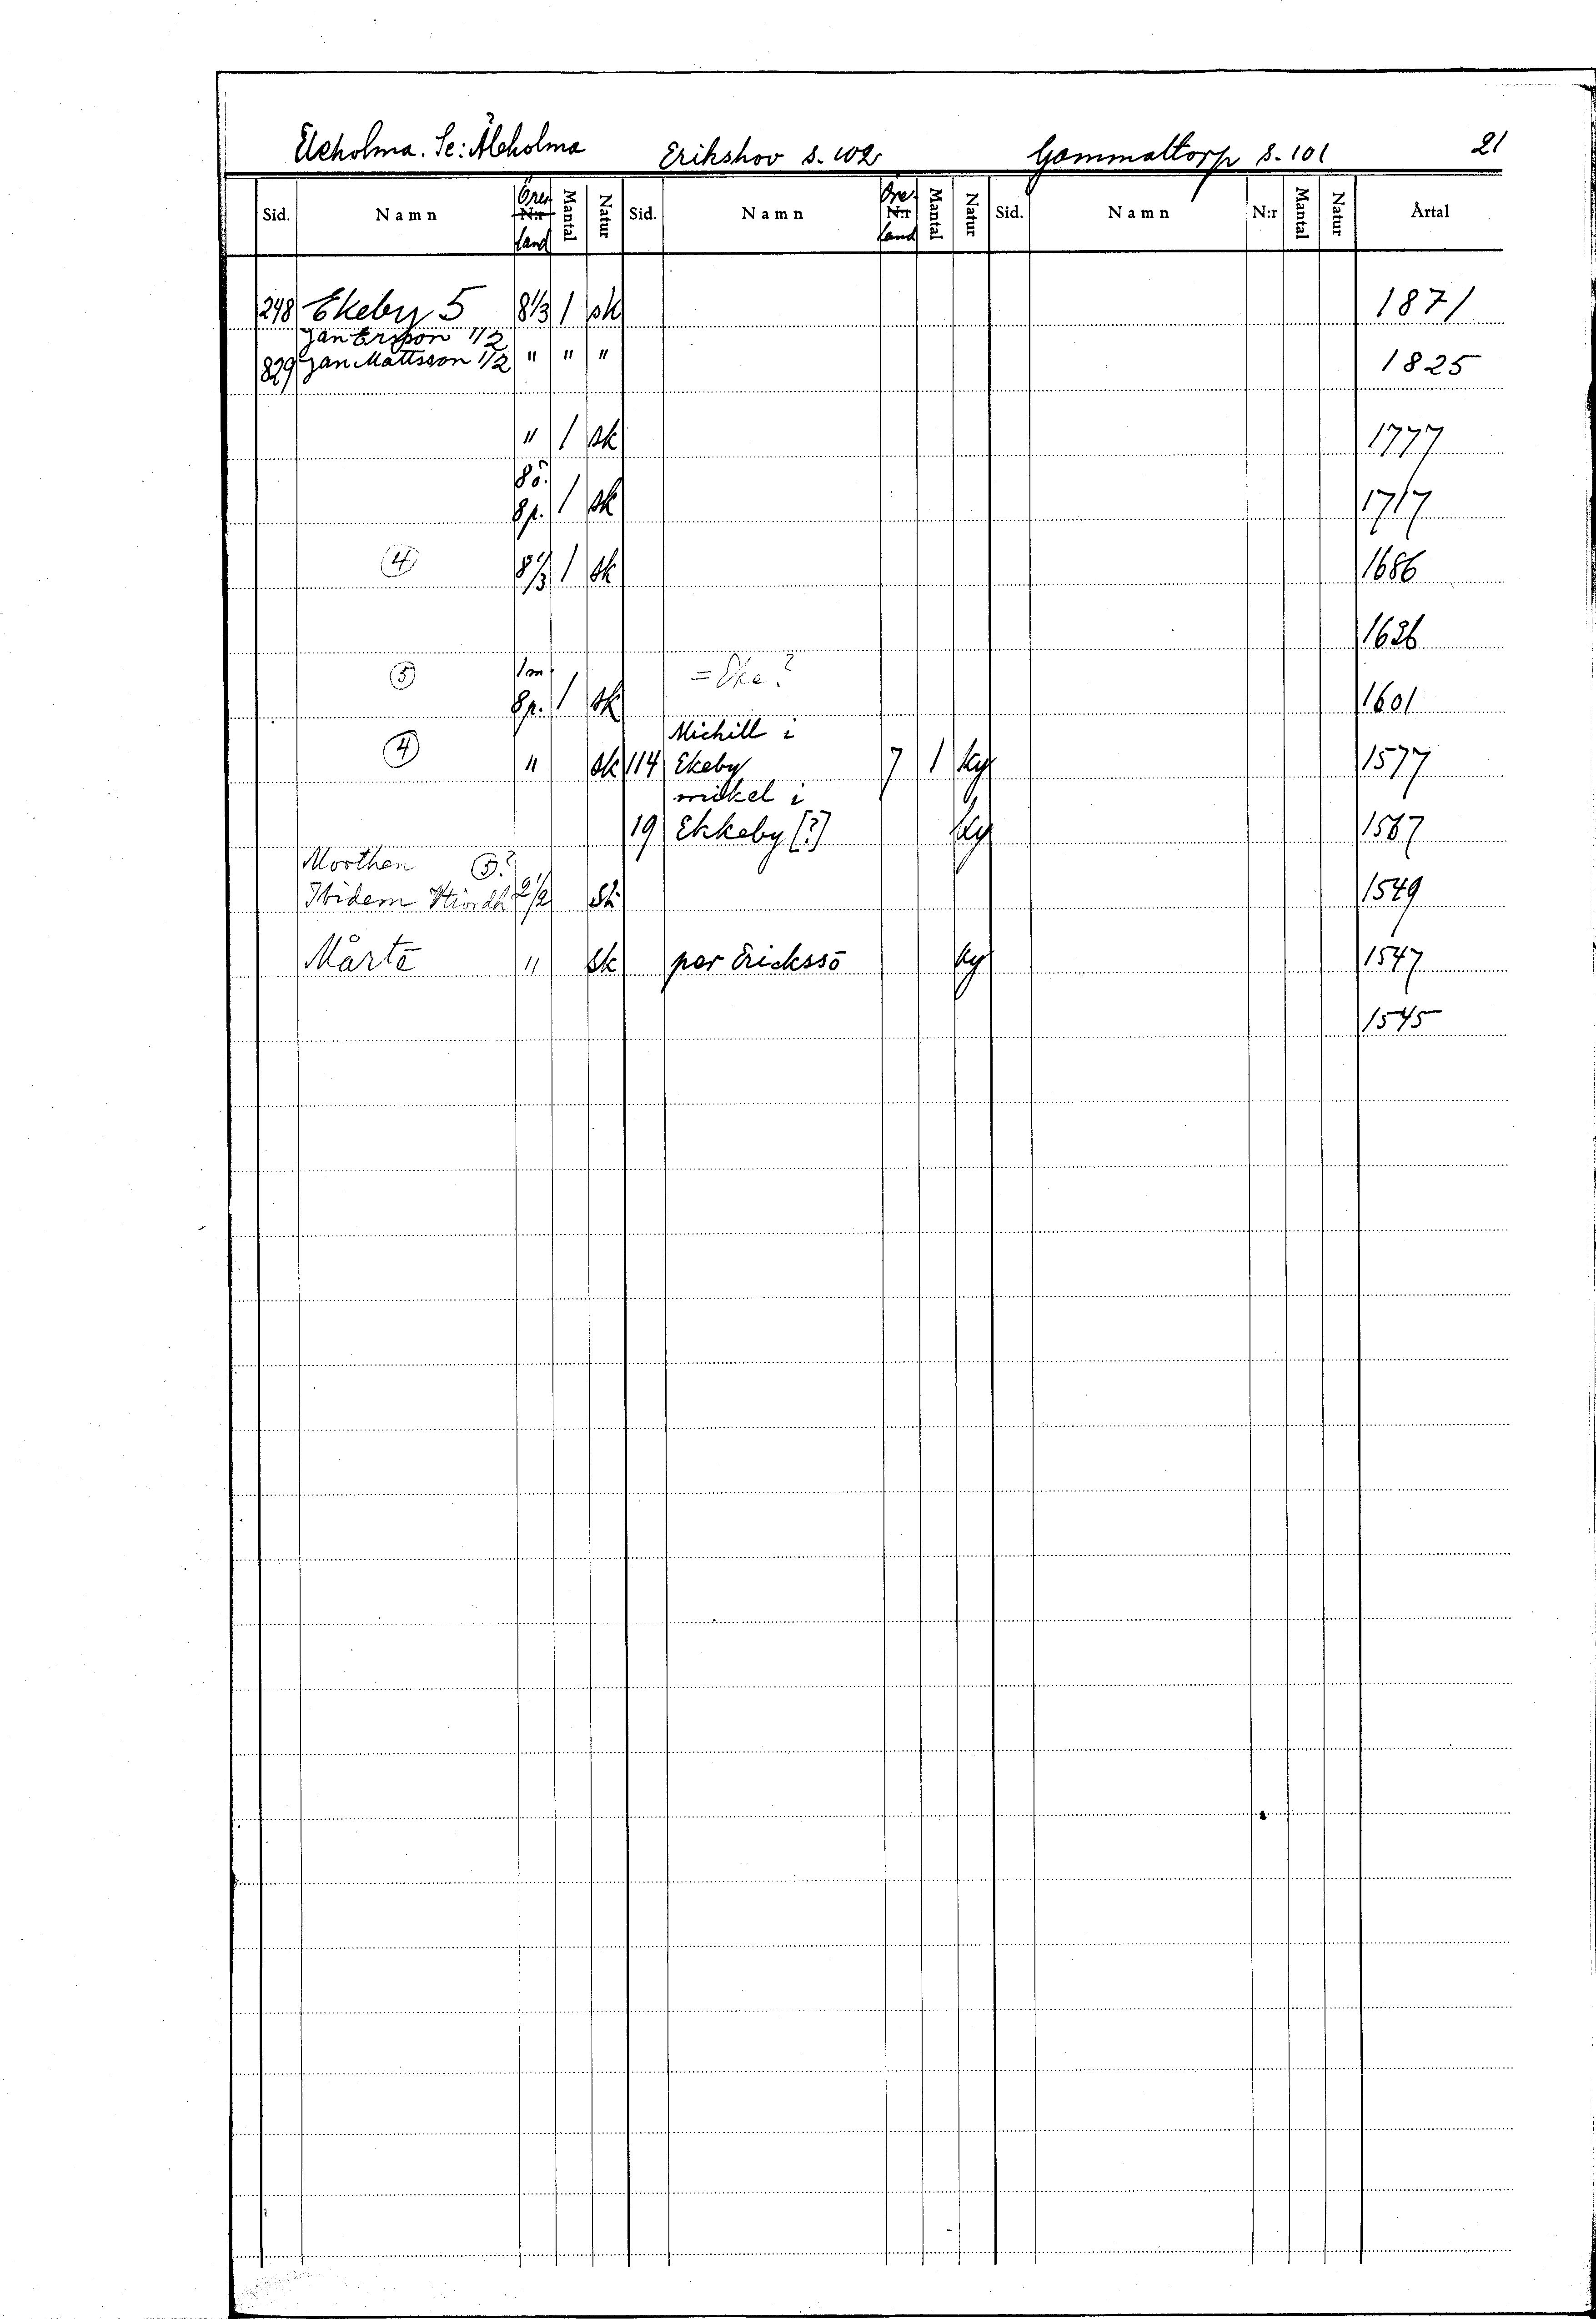 Elcholma. Se: Älcholma Erikshov s. 102 Gammaltorp s. 101 21
Sid. Namn Öres N:r land Mantal Natur Sid. Namn Öre N:r land Mantal Natur Sid. Namn N:r Mantal Natur Årtal
248 Ekeby 5 8 1/3 1 sk 1871
Jan Ersson 1/2
829 Jan Mattsson 1/2 " " " 1825
" 1 sk 1777
8 ö.
8 p. 1 sk 1717
4 8 1/3 1 sk 1686
1626
5 1 m. = Eke?
8 p. 1 sk 1601
Michill i
4 " sk 114 Ekeby 7 1 Ky 1577
mickel i
19 Ekkeby [?] Ky 1567
Morthen 5?
Ibidem 2 1/2 Sk 1549
Mårtē " Sk per Erickssō ky 1547
1545